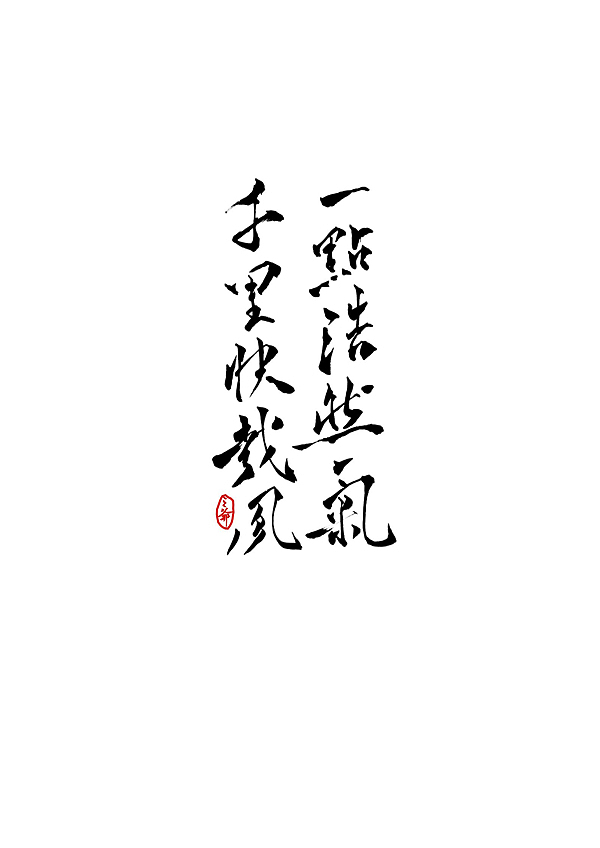 一點浩然氣
千里快哉風